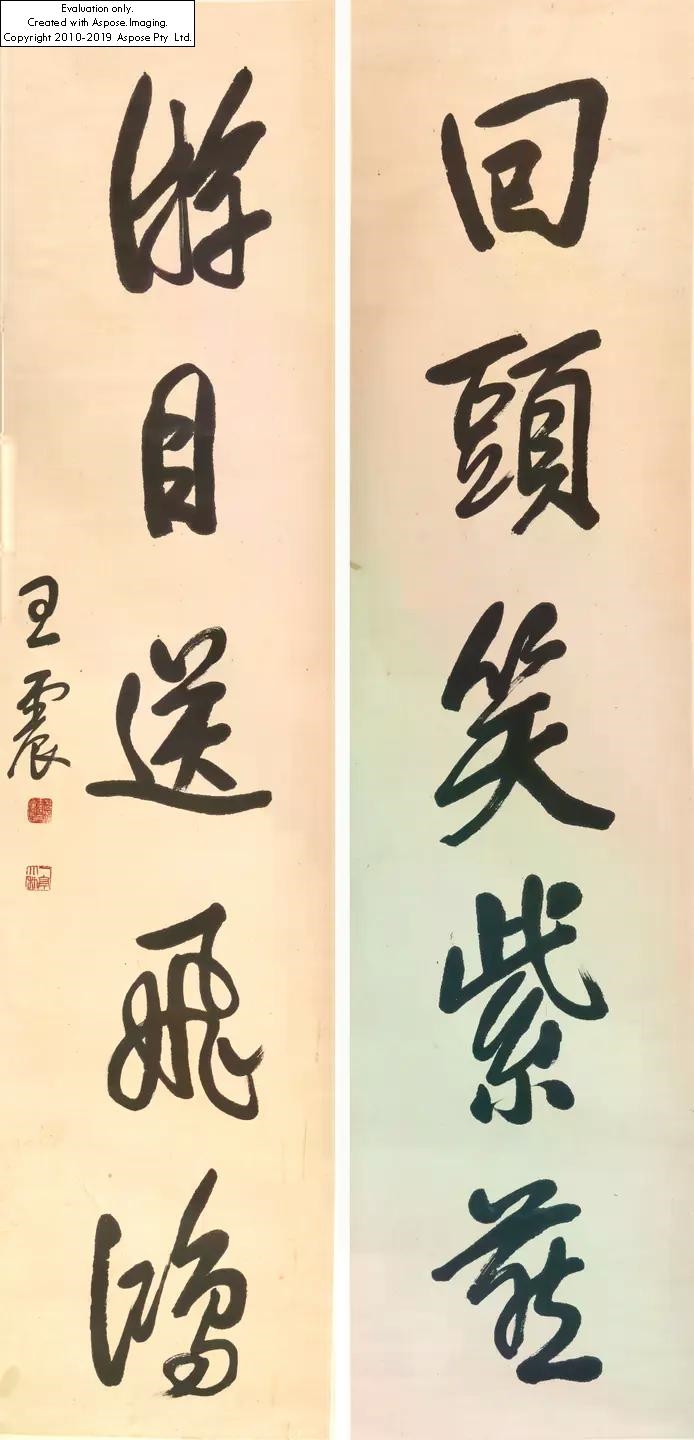 Evaluation only.
Created with Aspose.Imaging.
Copyright 2010-2019 Aspose Pty Ltd.
回頭笑紫燕
游目送飛鴻
王震